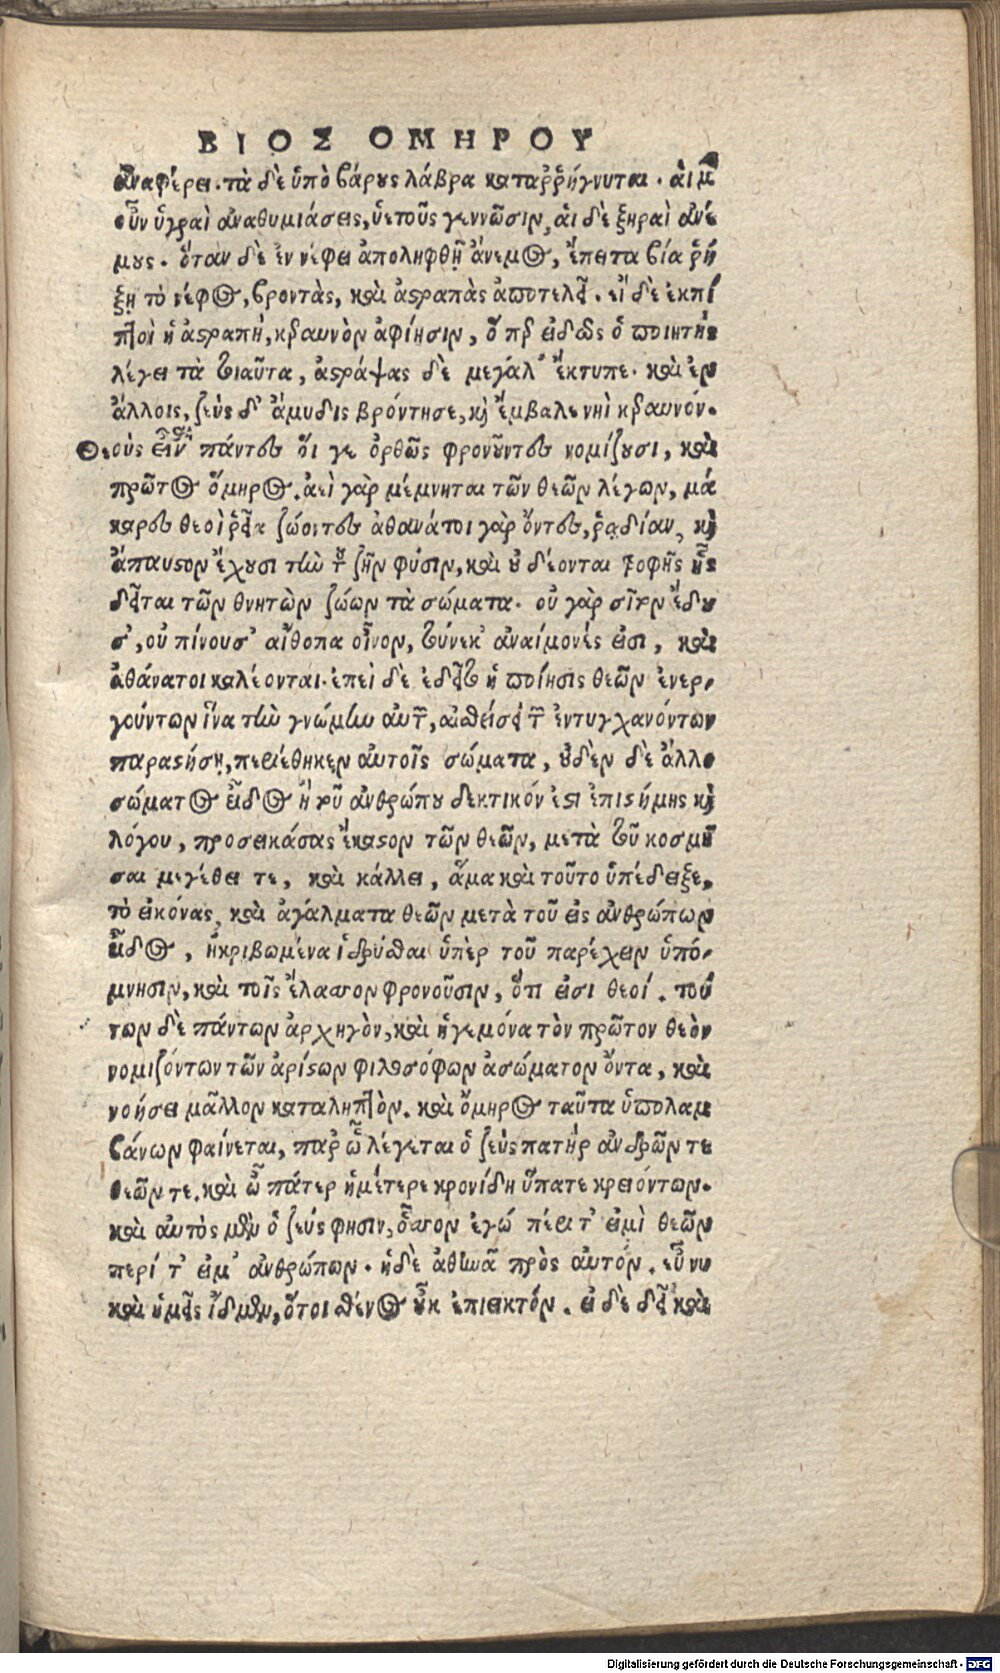 ΒΙΟΣ ΟΜΗΡΟΥ
ἀναφέρει. τὰ δὲ ὑπὸ βάρους λάβρα καταῤῥήγνυται. ἁι μ
οὖν ὑγραὶ ἀναθυμιάσεις, ὑετοὺς γεννῶσιν, ἁι δὲ ξηραὶ ἀνέ
μους. ὅταν δὲ ἐν νέφει ἀποληφθῇ ἄνεμος, ἔπειτα βία ῥή
ξῃ τὸ νέφος, βροντὰς, καὶ ἀστραπὰς ἀποτελεῖ. εἰ δὲ ἐκπί
πτοι ἡ ἀστραπὴ, κεραυνὸν ἀφίησιν, ὅ περ εἰδὼς ὁ ποιητὴς
λέγει τὰ τοιαῦτα, ἀστράψας δὲ μεγάλ' ἔκτυπε. καὶ ἐν
ἄλλοις, ζεὺς δ' ἄμυδις βρόντησε, καὶ ἔμβαλε νηὶ κεραυνόν.
Θεοὺς εἶναι πάντες ὅι γε ὀρθῶς φρονοῦντες νομίζουσι, καὶ
πρῶτος ὅμηρος. ἀεὶ γὰρ μέμνηται τῶν θεῶν λέγων, μά
καρες θεοὶ ῥεῖα ζώοντες ἀθανάτοι γὰρ ὄντες, ῥαδίαν, καὶ
ἄπαυστον ἔχουσι τὴν τοῦ ζῆν φύσιν, καὶ οὐ δέονται τροφῆς ἧς
δεῖται τῶν θνητῶν ζώων τὰ σώματα. οὐ γὰρ σῖτον ἔδου
σ', οὐ πίνουσ' αἴθοπα οἶνον, τούνεκ' ἀναίμονές εἰσι, καὶ
ἀθάνατοι καλέονται. ἐπεὶ δὲ ἐδεῖτο ἡ ποίησις θεῶν ἐνερ-
γούντων ἵνα τὴν γνώμην αὐτῶν, αἰσθήσει τῶν ἐντυγχανόντων
παραστήσῃ, περιέθηκεν αὐτοῖς σώματα, οὐδὲν δὲ ἄλλο
σώματος εἶδος ἢ τοῦ ἀνθρώπου δεκτικόν ἐστι ἐπιστήμης καὶ
λόγου, προσεικάσας ἕκαστον τῶν θεῶν, μετὰ τοῦ κοσμῆ
σαι μεγέθει τε, καὶ κάλλει, ἅμα καὶ τοῦτο ὑπέδειξε,
τὸ εἰκόνας, καὶ ἀγάλματα θεῶν μετὰ τοῦ εἰς ἀνθρώπων
εἶδος, ἠκριβωμένα ἱδρύσθαι ὑπὲρ τοῦ παρέχειν ὑπό-
μνησιν, καὶ τοῖς ἔλαττον φρονοῦσιν, ὅτι εἰσι θεοί. τού
των δὲ πάντων ἀρχηγὸν, καὶ ἡγεμόνα τὸν πρῶτον θεὸν
νομιζόντων τῶν ἀρίστων φιλοσόφων ἀσώματον ὄντα, καὶ
νοήσει μᾶλλον καταληπτὸν. καὶ ὅμηρος ταῦτα ὑπολαμ
βάνων φαίνεται, παρ' ᾧ λέγεται ὁ ζεὺς πατὴρ ἀνδρῶν τε
θεῶν τε. καὶ ὦ πάτερ ἡμέτερε κρονίδη ὕπατε κρειόντων.
καὶ αὐτὸς μὲν ὁ ζεύς φησιν, ὅσσον ἐγώ περι τ' εἰμὶ θεῶν
περί τ' εἰμ' ἀνθρώπων. ἡ δὲ ἀθηνᾶ πρὸς αὐτόν. εὖ νυ
καὶ ἡμεῖς ἴδμεν, ὅτοι σθένος οὖκ ἐπιεικτόν. εἰ δὲ δεῖ καὶ
Digitalisierung gefördert durch die Deutsche Forschungsgemeinschaft - DFG